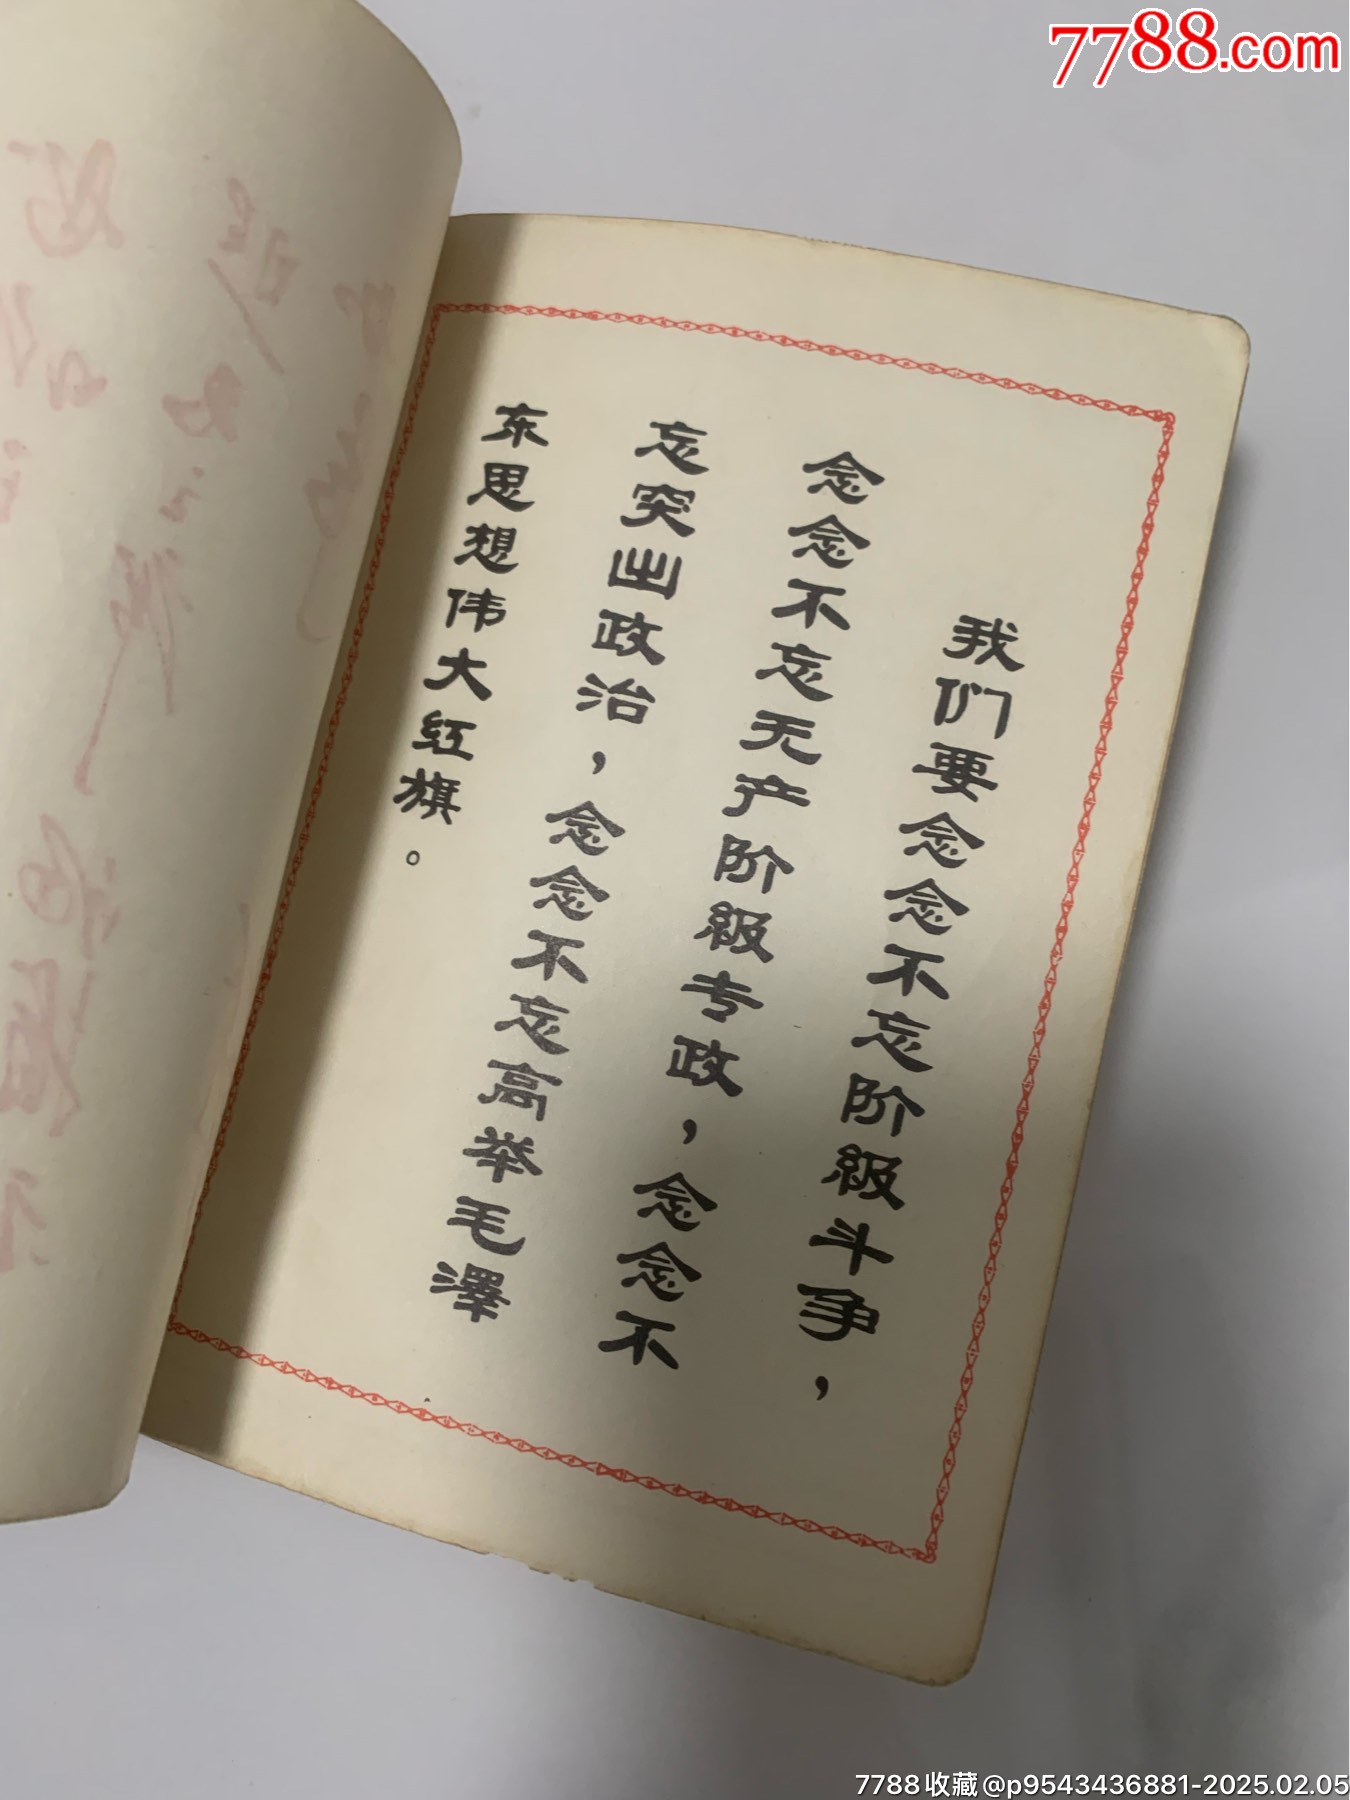 7788.com
我们要念念不忘阶级斗争，
念念不忘无产阶级专政，念念不
忘突出政治，念念不忘高举毛澤
东思想伟大红旗。
7788收藏@p9543436881-2025.02.05